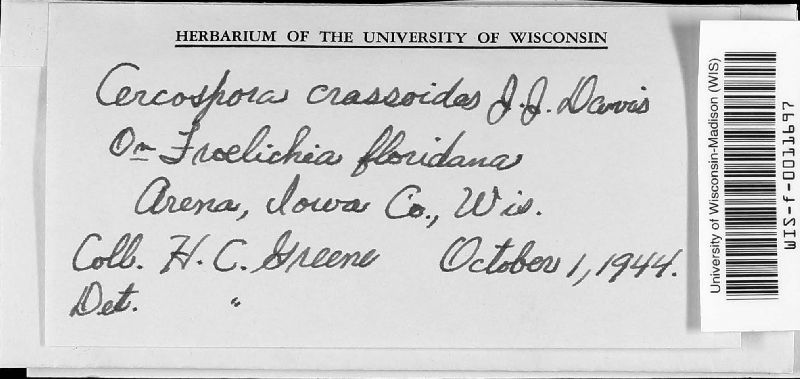 HERBARIUM OF THE UNIVERSITY OF WISCONSIN
Cercospora crassoides J.J. Davis
On Froelichia floridana
Arena, Iowa Co., Wis.
Coll. H. C. Greene October 1, 1944.
Det. "
University of Wisconsin-Madison (WIS)
WIS-f-0011697